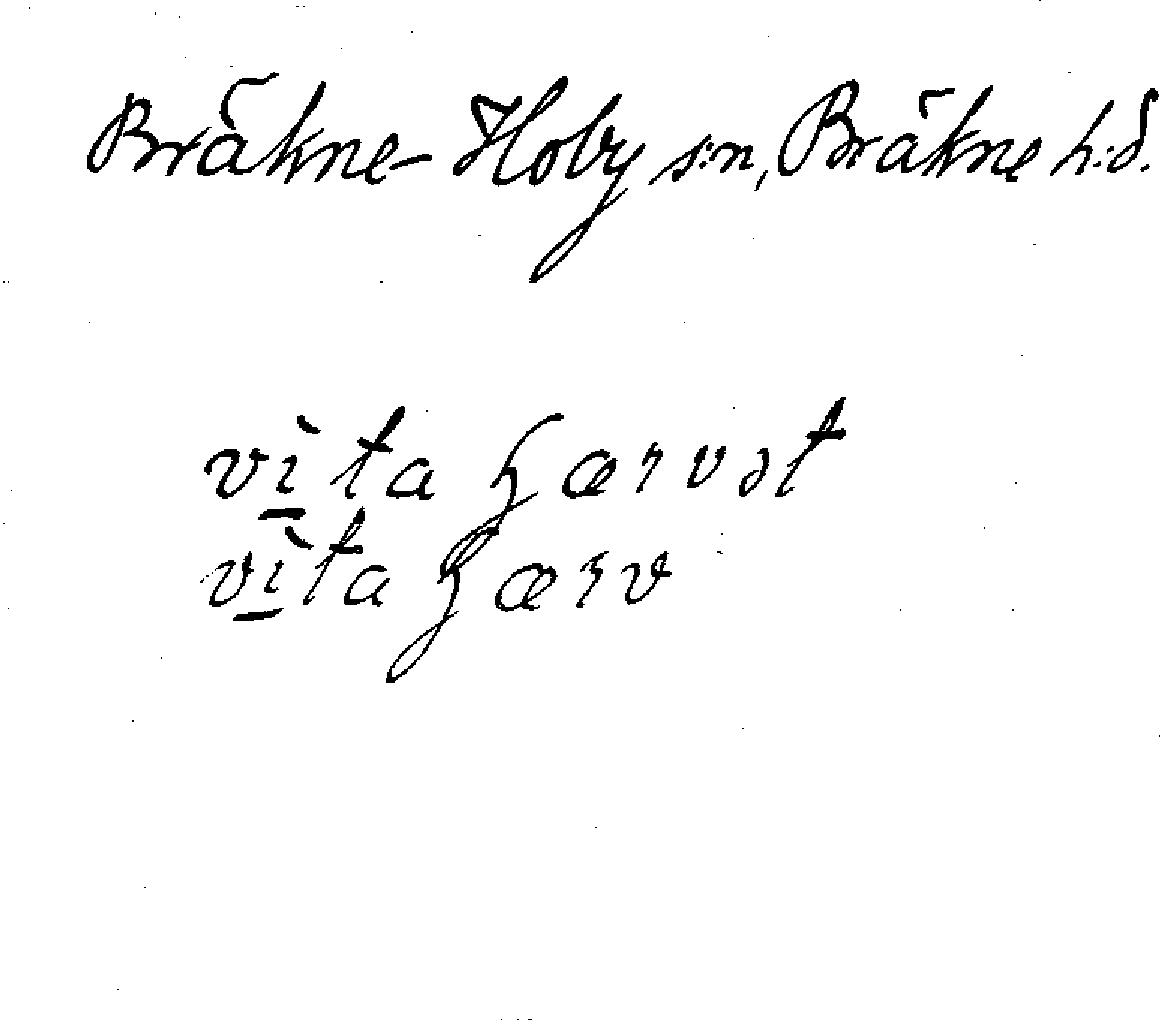 Bräkne-Hoby s:n, Bräkne h:d.
vìta hærvət
vìta hærv